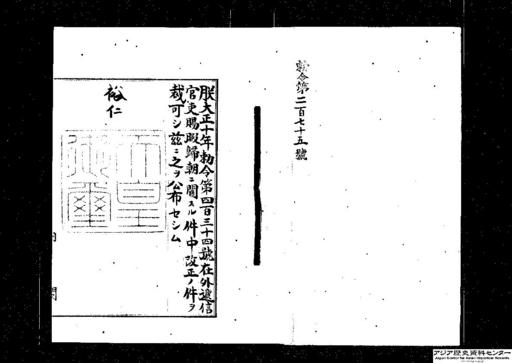 勅令第二百七十五號
朕大正十年勅令第四百三十四號在外遞信
官吏賜暇歸朝ニ關スル件中改正ノ件ヲ
裁可シ茲ニ之ヲ公布セシム
裕仁
天皇御璽
内
閣
アジア歴史資料センター
Japan Center for Asian Historical Records